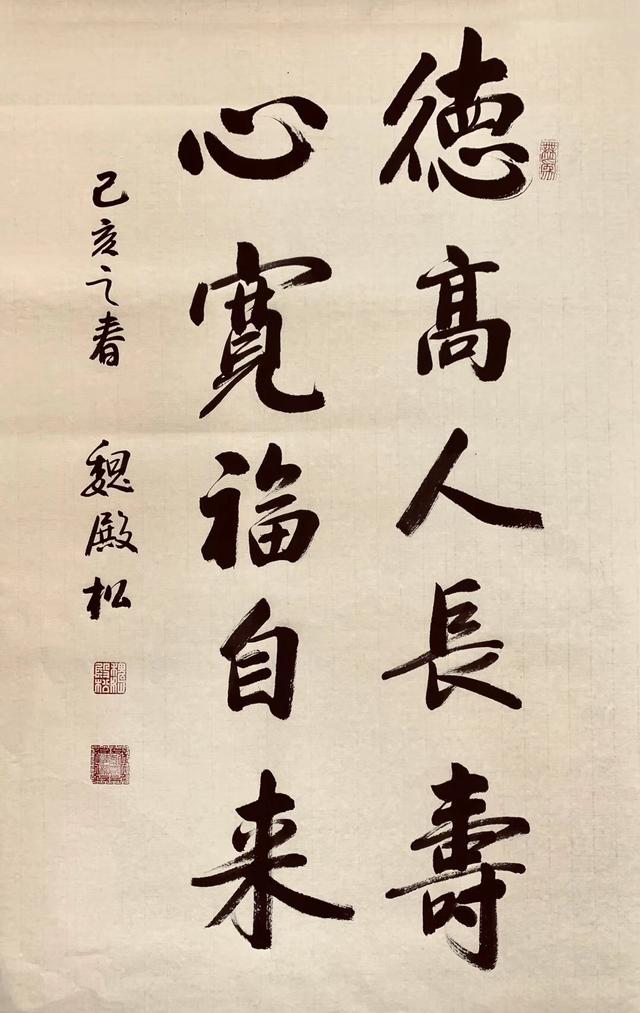 德高人長壽
心寬福自来
己亥之春 魏殿松